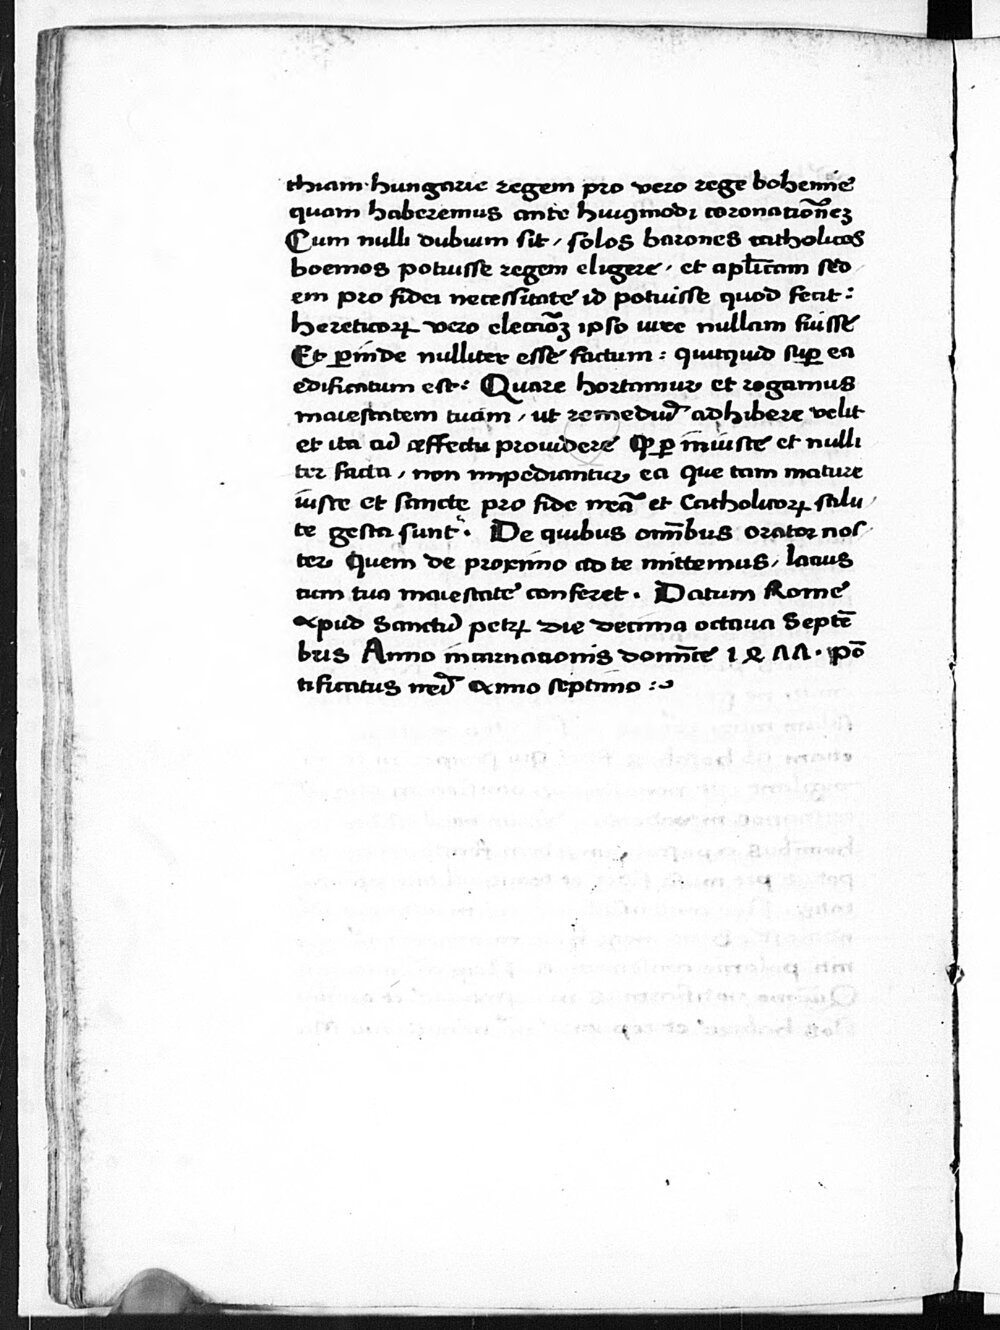 thiam hungarie regem pro vero rege bohemie
quam haberemus ante huiꝯmodi coronationē
Cum nulli dubium sit / solos barones catholicos
boemos potuisse regem eligere / et apl̄icam sed
em pro fidei necessitate id potuisse quod fecit :
hereticoꝝ vero electiōꝫ ipso iure nullam fuisse
Et ꝑinde nulliter esse factum : quitquid suꝑ ea
edificatum est : Quare hortamur et rogamus
maiestatem tuam / ut remediū adhibere velit
et ita ad effectū prouidere ꝙ ꝑ iniuste et nulli
ter facta / non impediantur ea que tam mature
iuste et sancte pro fide nr̄a et Catholicoꝝ salu
te gesta sunt . De quibus om̄ibus orator nos
ter Quem de proximo ad te mittemus / lacius
cum tua maiestate conferet . Datum Rome
apud Sanctū petꝝ die decima octaua Septē
bris Anno incarnationis domīce 1ꝝ77 . pō
tificatus nrī Anno septimo :